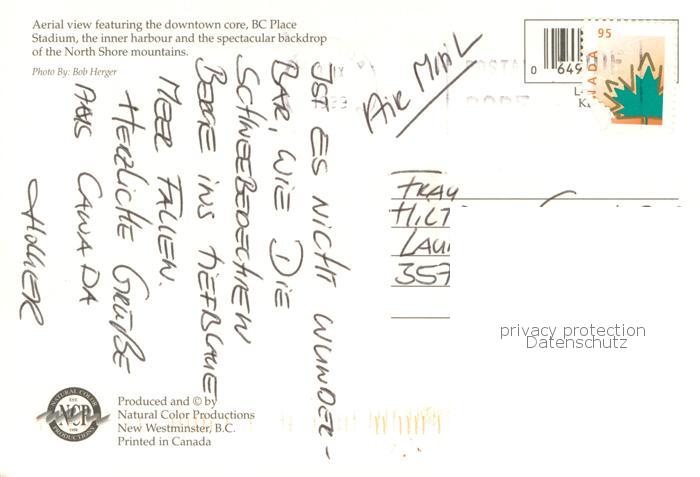 Aerial view featuring the downtown core, BC Place
Stadium, the inner harbour and the spectacular backdrop
of the North Shore mountains.
Photo By: Bob Herger
AIR MAIL
0 649
CANADA 95
IST ES NICHT WUNDER-
BAR, WIE DIE
SCHNEEBEDECHTEN
BERGE INS TIEFBLAUE
MEER FALLEN.
HERZLICHE GRÜßE
AUS CANADA
FRAU
HILT
LAU
357
privacy protection
Datenschutz
NATURAL COLOR
EST.
NCP
PRODUCTIONS
Produced and © by
Natural Color Productions
New Westminster, B.C.
Printed in Canada